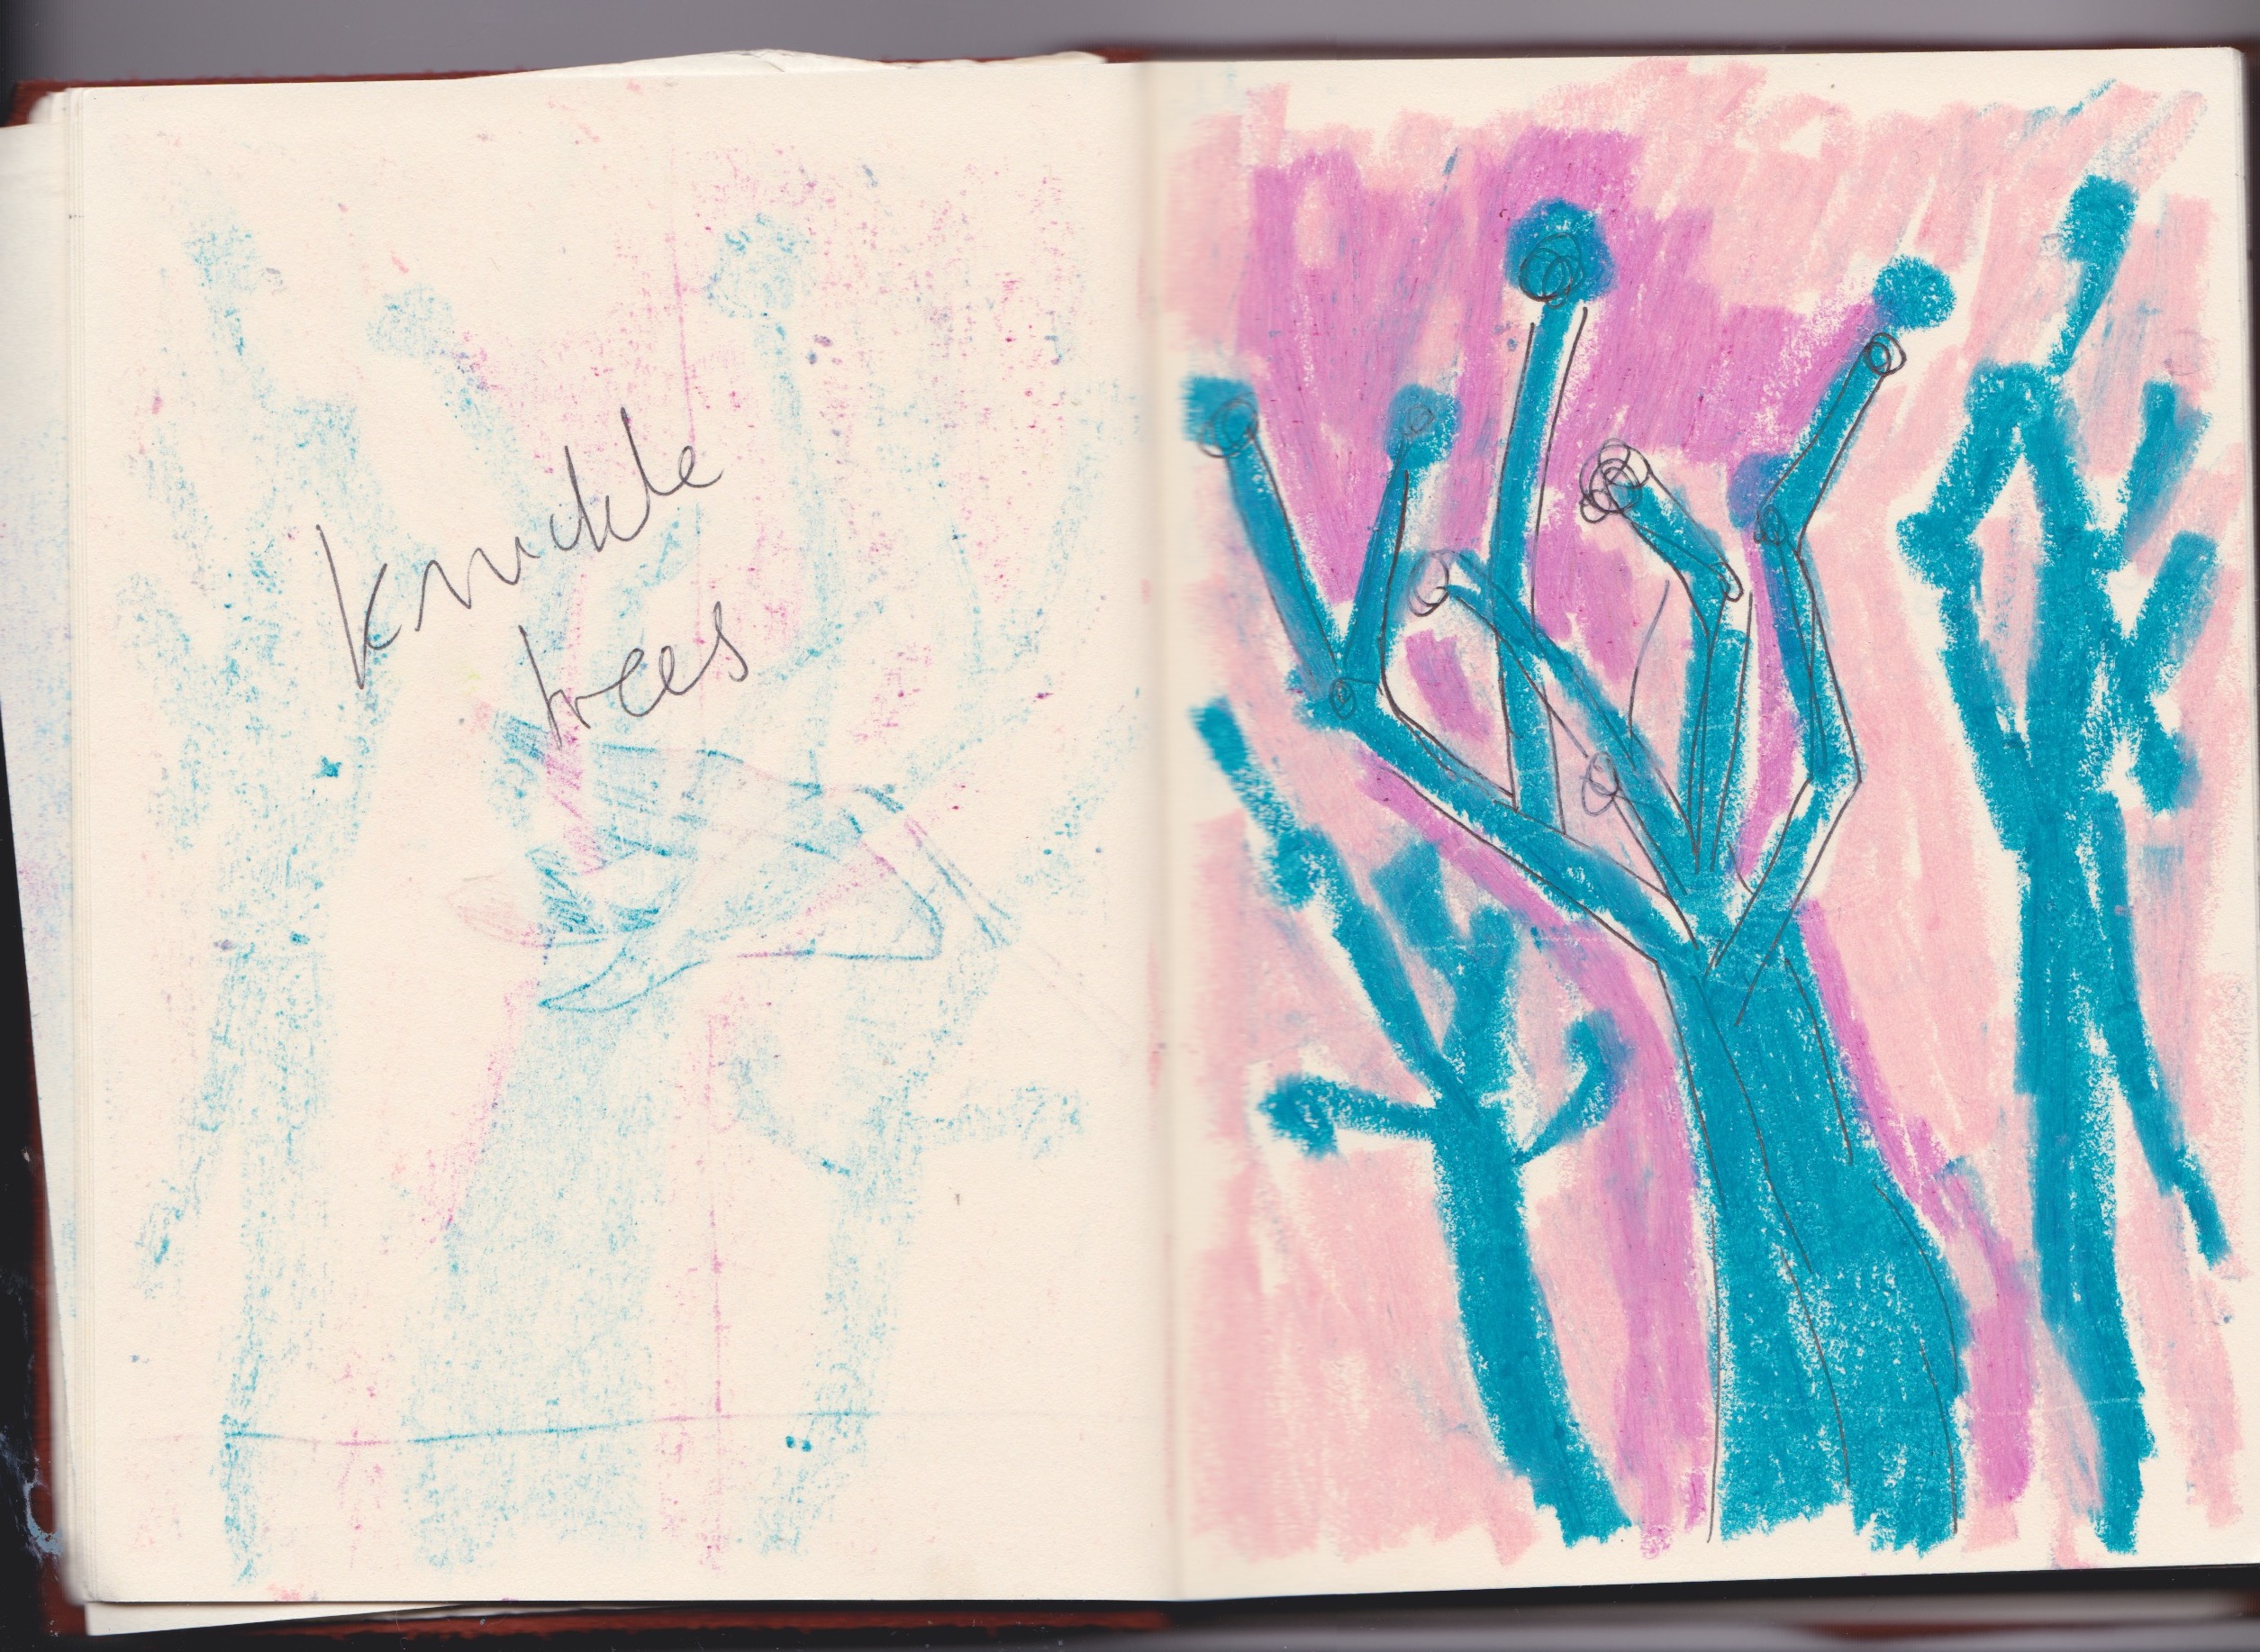 knuckle
trees